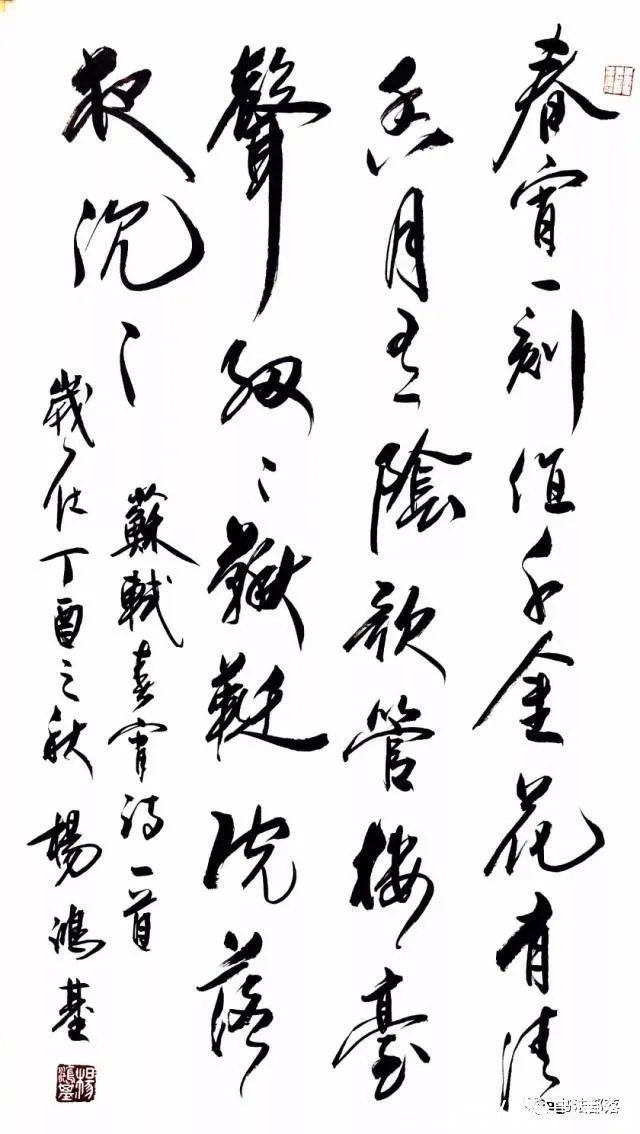 春宵一刻值千金花有清
香月有陰歌管樓臺
聲細〻鞦韆院落
夜沉〻
蘇軾春宵詩一首
歲在丁酉之秋 楊鴻基
楊鴻基
书法部落